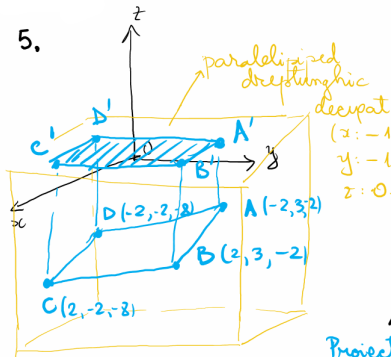 5.
z
paralelipiped
dreptunghic
decupat
(x: -1
y: -1
z: 0
D'
A'
C'
O
B'
y
x
D(-2,-2,-8)
A(-2,3,-2)
B(2,3,-2)
C(2,-2,-8)
Proiect